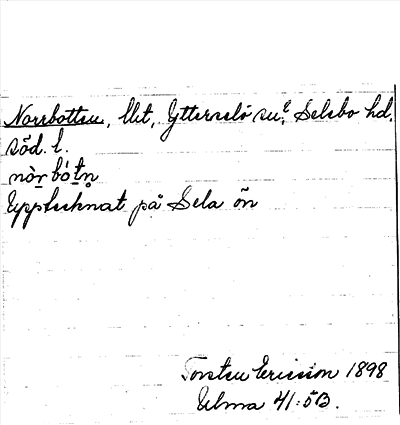 Norrbotten, llit, Ytterselö sn, Selebo hd.
söd. l.
nòr bótn
Upptecknat på Sela ön
Torsten Ericsson 1898
Ulma 41:5B.